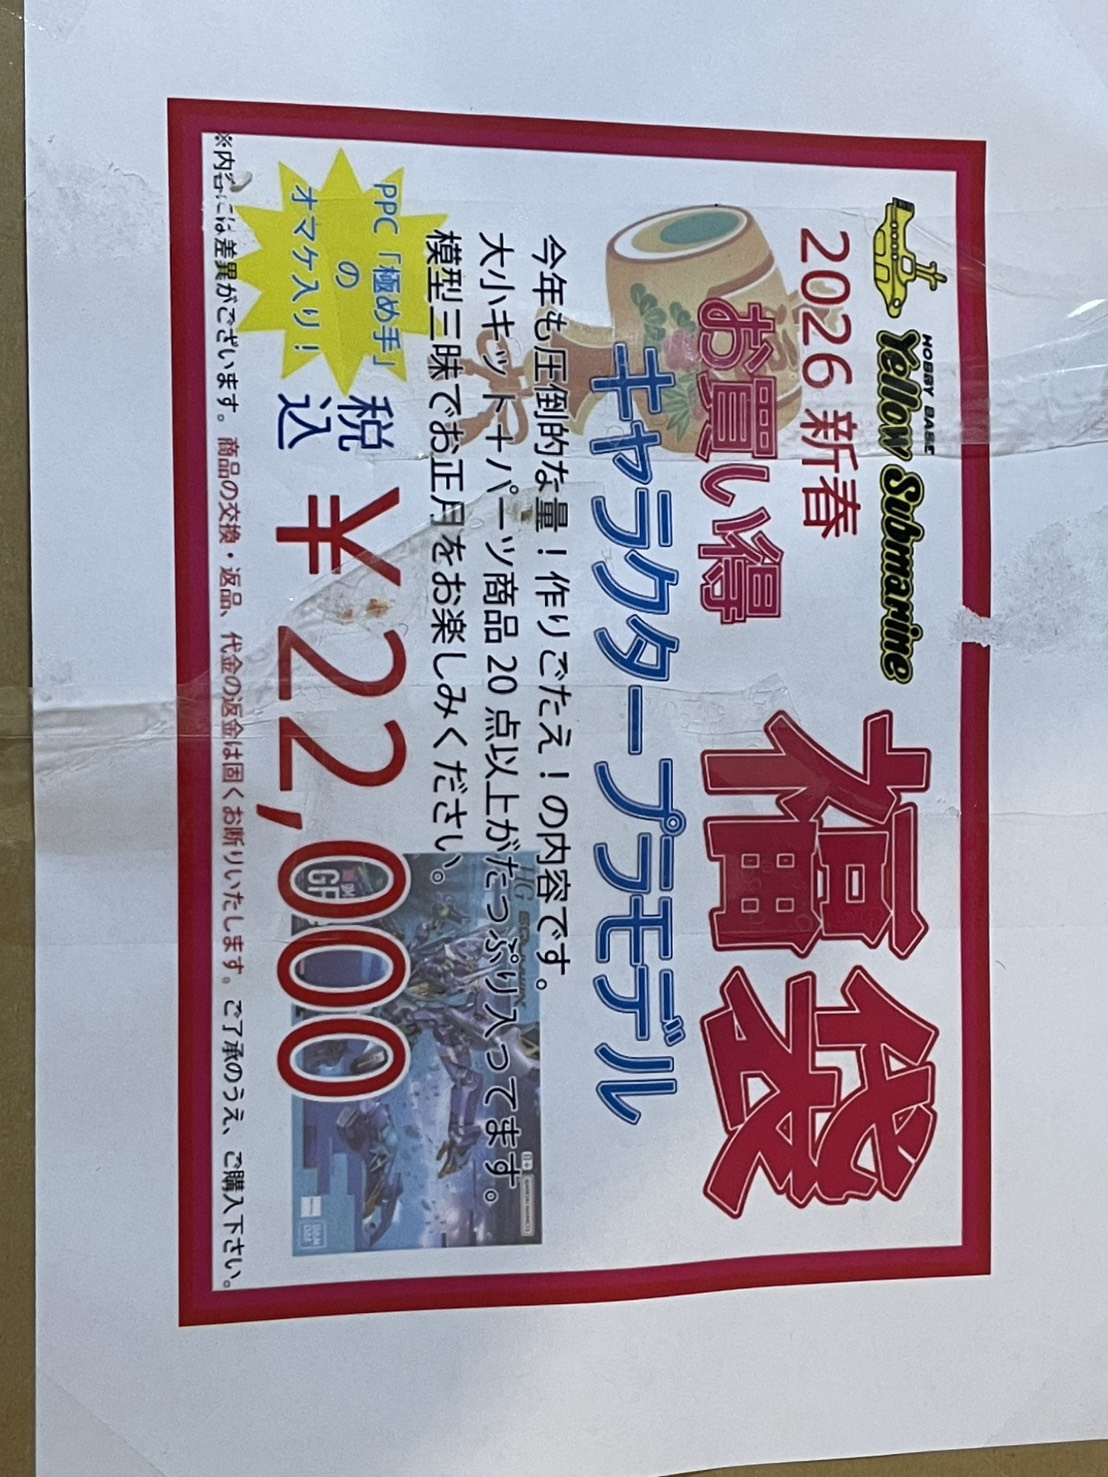 HOBBY BASE
Yellow Submarine
2026 新春
お買い得
福袋
キャラクタープラモデル
今年も圧倒的な量！作りごたえ！の内容です。
大小キット＋パーツ商品 20 点以上がたっぷり入ってます。
模型三昧でお正月をお楽しみください。
PPC「極め手」
の
オマケ入り！
税込
¥22,000
HG
※内容には差異がございます。商品の交換・返品、代金の返金は固くお断りいたします。ご了承のうえ、ご購入下さい。